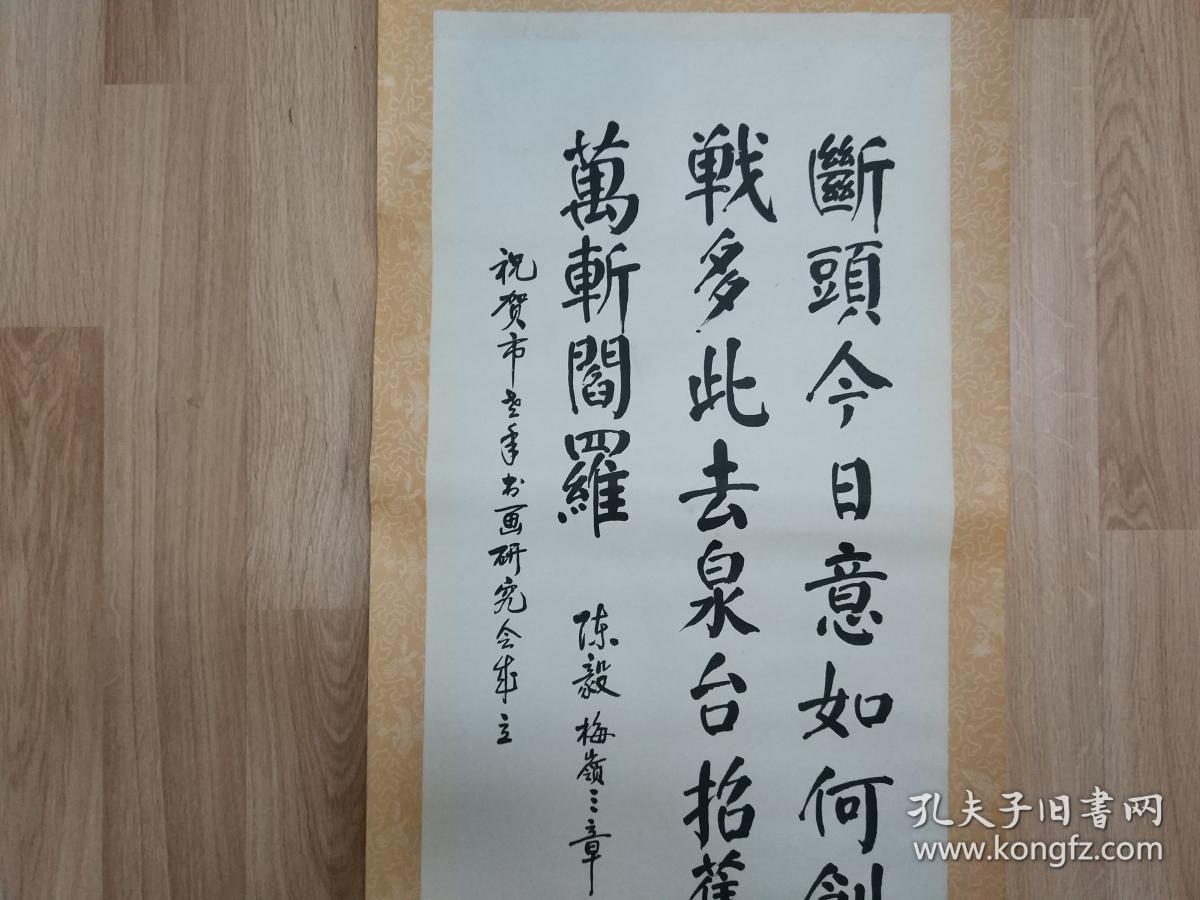 斷頭今日意如何創
戦多此去泉台招舊
萬斬閻羅 陈毅梅嶺三章
祝贺市老年书画研究会成立
孔夫子旧書网
www.kongfz.com